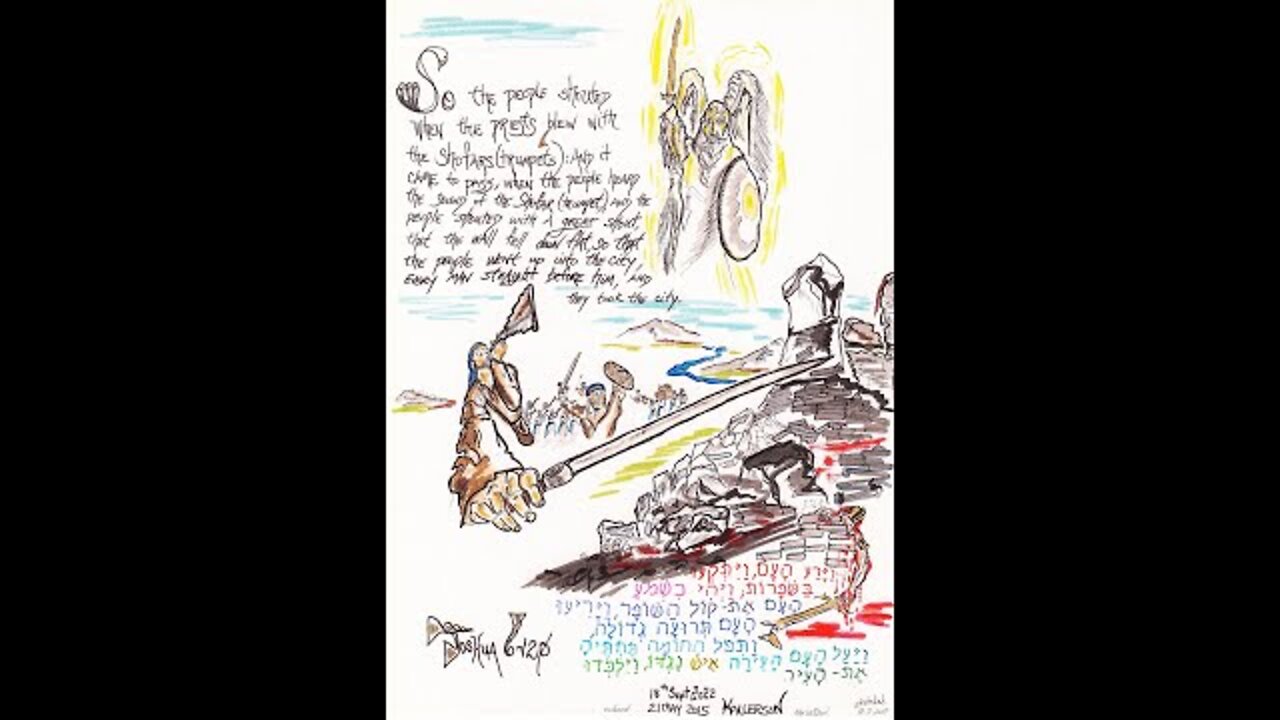 So the people shouted
when the PRIESTS blew with
the Shofars (trumpets): and it
came to pass, when the people heard
the sound of the Shofar (trumpet) and the
people shouted with a great shout
that the wall fell down flat, so that
the people went up into the city,
every man straight before him, and
they took the city.
וַיָּרַע הָעָם, וַיִּתְקְעוּ
בַּשֹּׁפָרוֹת, וַיְהִי כִשְׁמֹעַ
הָעָם אֶת-קוֹל הַשּׁוֹפָר, וַיָּרִיעוּ
הָעָם תְּרוּעָה גְדוֹלָה,
וַתִּפֹּל הַחוֹמָה תַּחְתֶּיהָ
וַיַּעַל הָעָם הָעִירָה אִישׁ נֶגְדּוֹ, וַיִּלְכְּדוּ
אֶת-הָעִיר
Joshua 6v20
18th Sept 2022
21 May 2015